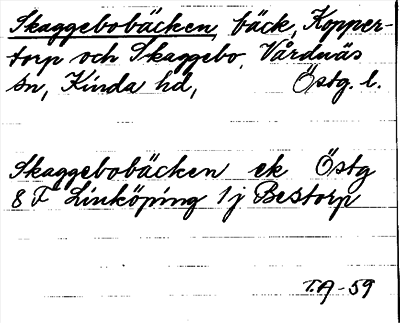 Skaggebobäcken, bäck, Kopper-
torp och Skaggebo, Vårdnäs
sn, Kinda hd, Östg. l.
Skaggebobäcken ek Östg
8 F Linköping 1j Bestorp
T.A-59